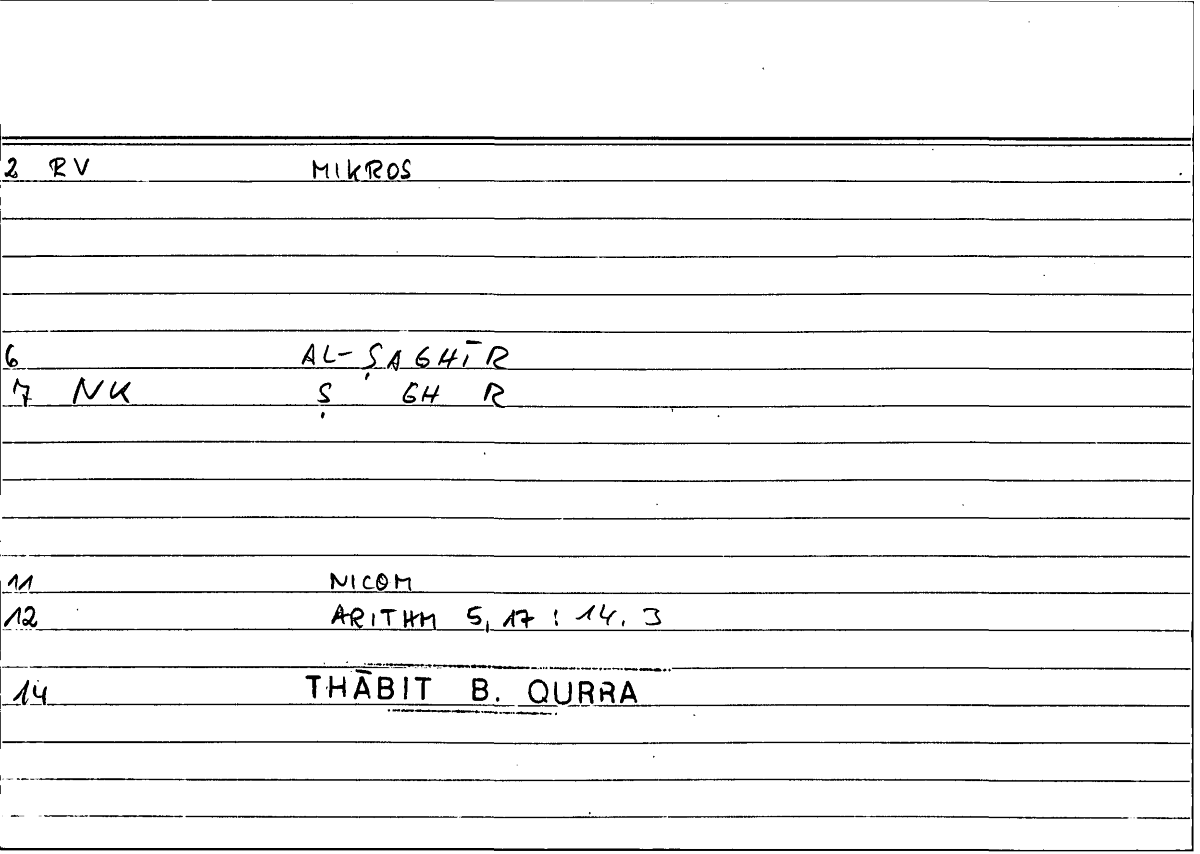 2 RV MIKROS
6 AL-ṢAGHĪR
7 NK Ṣ GH R
11 NICOM
12 ARITHM 5,17 : 14.3
14 THĀBIT B. QURRA